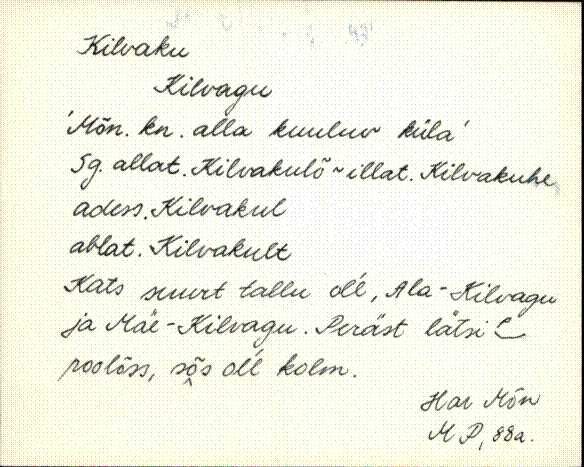 Kilvaku
Kilvagu
'Mõn. kn. alla kuuluv küla'
Sg. allat. Kilvakulõ ~ illat. Kilvakuhe
adess. Kilvakul
ablat. Kilvakult
Kats suurt tallu oĺl, Ala-Kilvagu
ja Mäe-Kilvagu. Peräst lätsi
poolõss, sõ̭s oĺl kolm.
Har Mõn
M P, 88a.